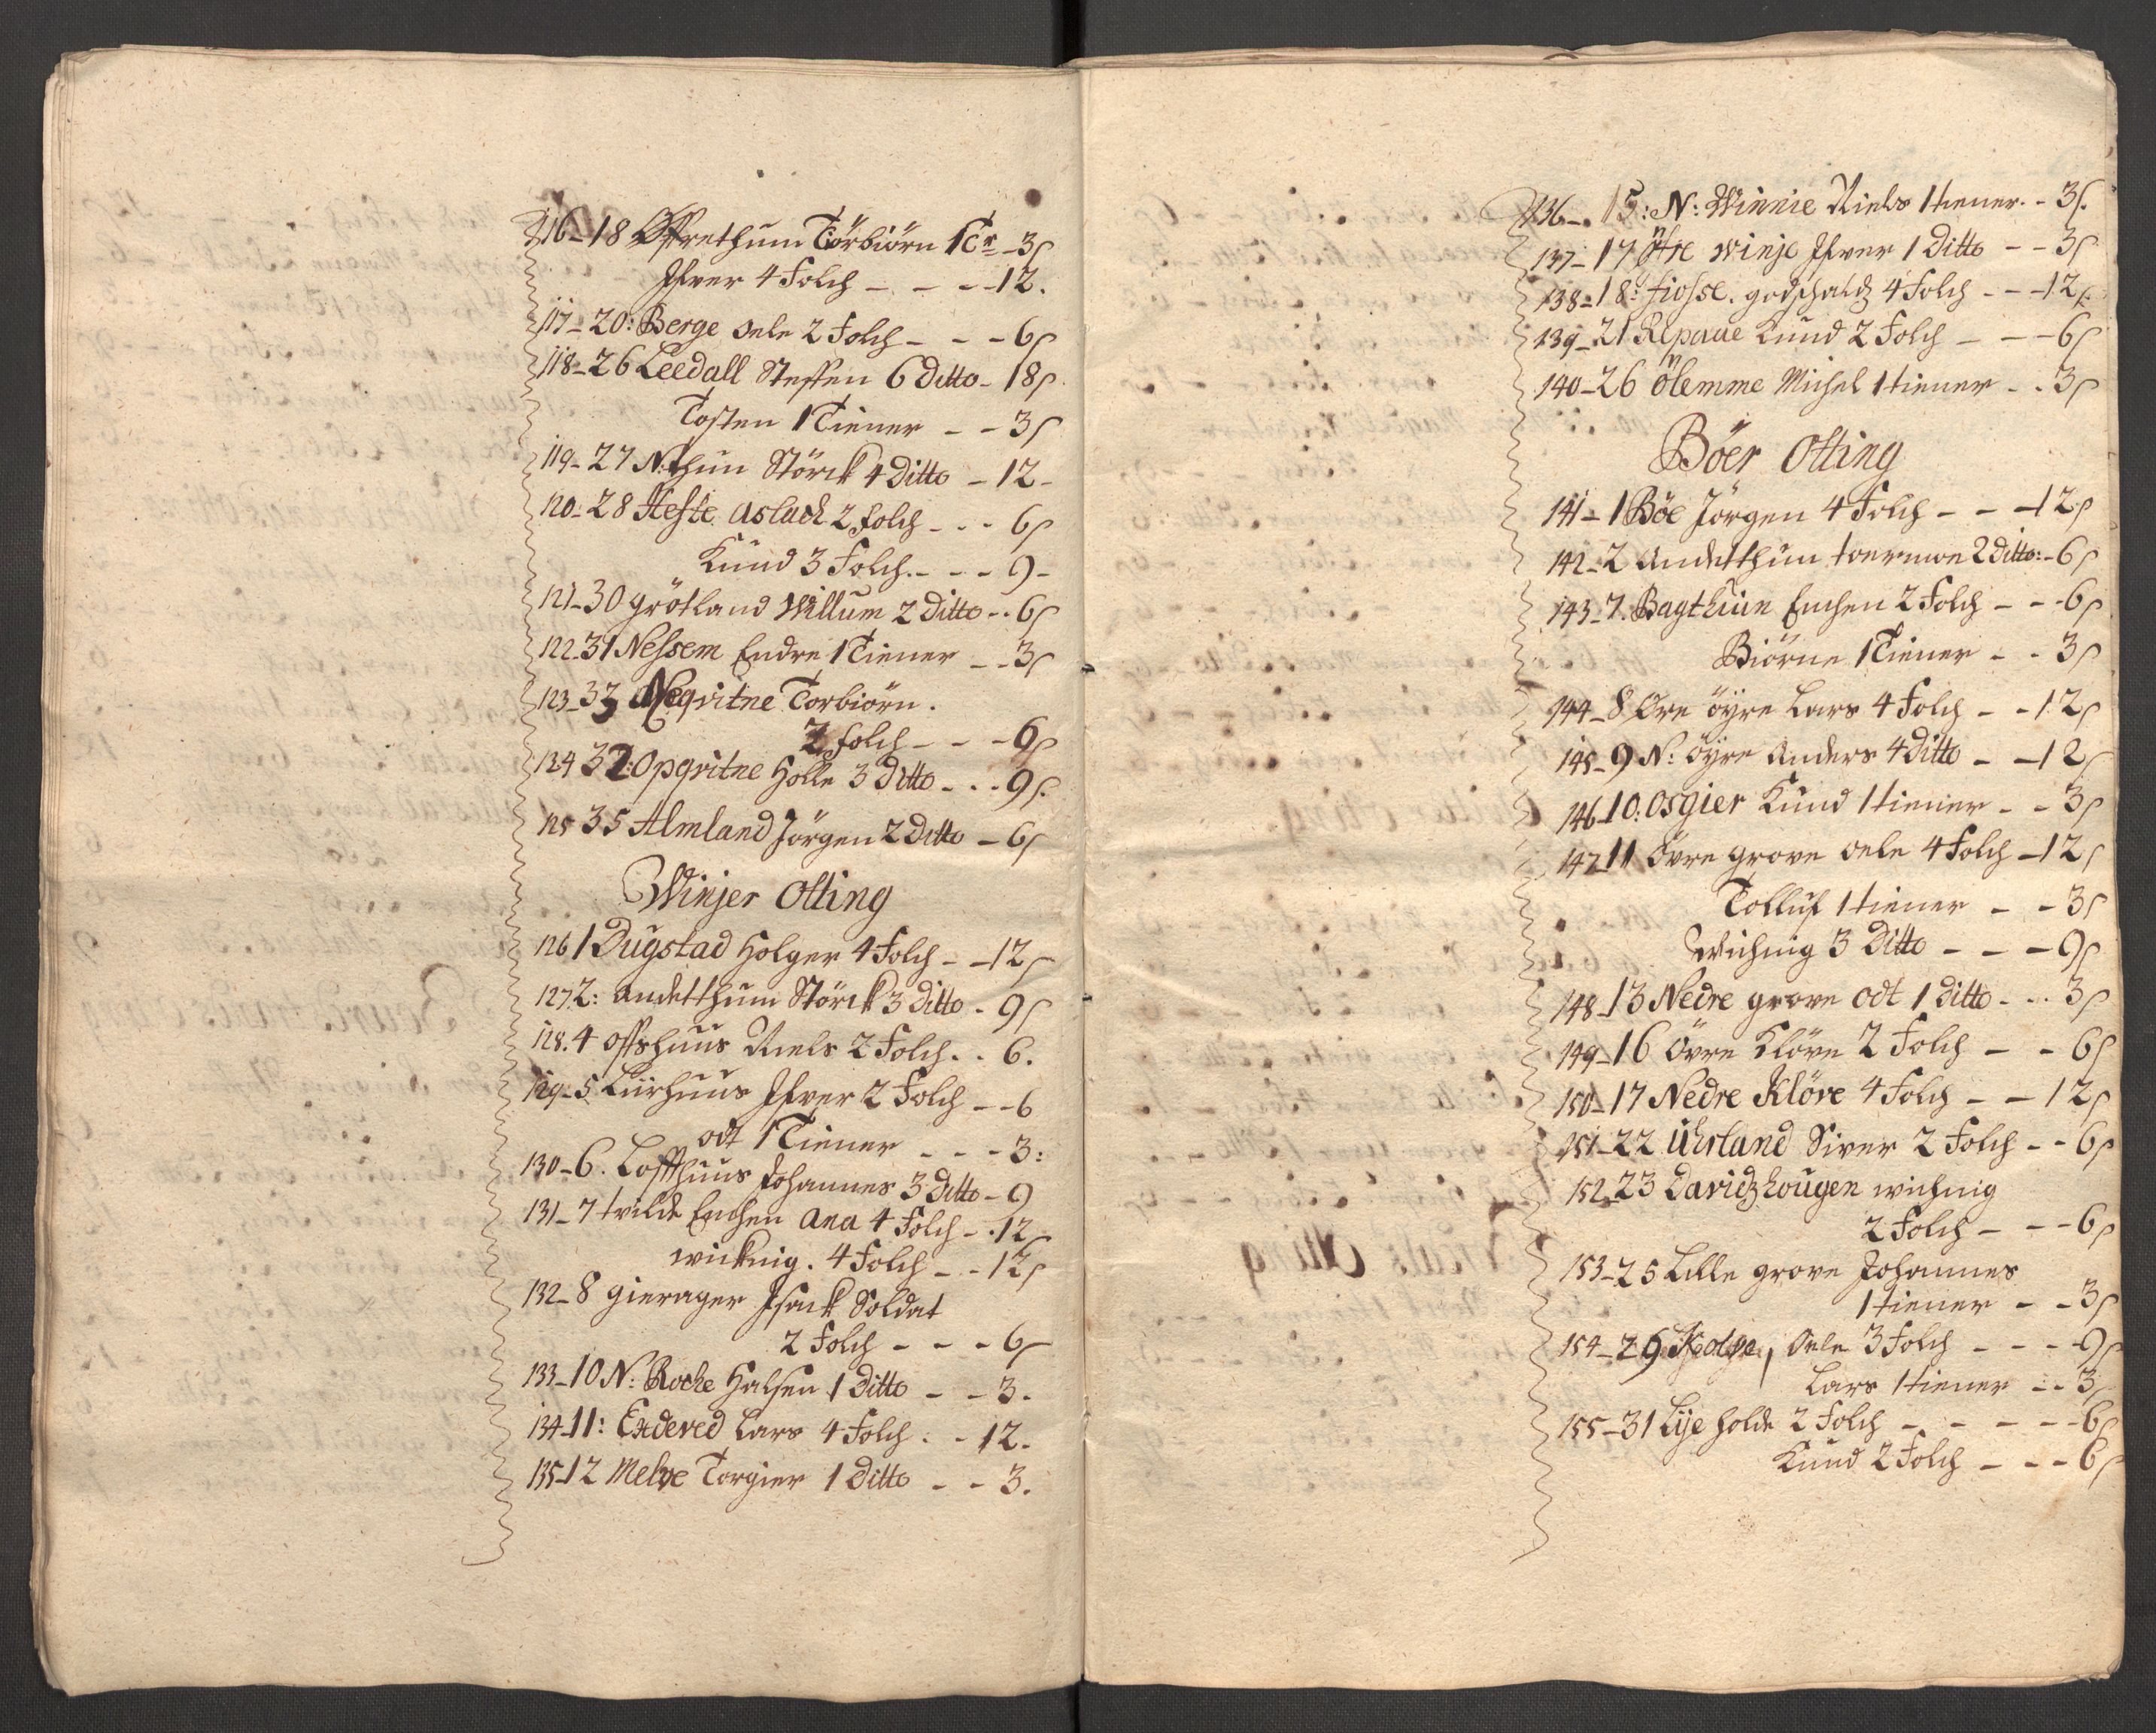 116 - 18 Öffrethuun Törbiörn 1 Tr - 3 s
Ifver 4 Folch - - - 12.
117 - 20: Berge oele 2 Folch - - - 6 s
118 - 26 Leedall Steffen 6 Ditto - 18 s
Tosten 1 Tiener - - 3 s
119 - 27 N: thun Störck 4 Ditto - 12 -
120 - 28 Hefte Aslack 2 folch - - - 6 s
Knud 3 Folch - - - 9 -
121 - 30 grötland Willum 2 Ditto - - 6 s
122 - 31 Nessem Endre 1 Tiener - - 3 s
123 - 33 Neqvitne Torbiörn.
2 folch - - - 6 s
124 32: Opqvitne Holle 3 Ditto - - - 9 s
125 35 Almland Jörgen 2 Ditto - 6 s
Winjer Otting
126 1 Dugstad Holger 4 Folch - - 12 s
127 2: andetthun Störck 3 Ditto - 9 s
128. 4 offshuus Niels 2 Folch - - 6.
129 - 5 Liirhuus Ifver 2 Folch - - 6
odt 1 Tiener - - - 3:
130 - 6. Loffthuus Johannes 3 Ditto - 9
131 - 7 tvilde Enchen Ana 4 Folch - - 12 s
wichnig. 4 Folch - - 12 s
132 - 8 gierager Isack Soldat
2 Folch - - - 6 s
133 - 10 N: Roche Halsen 1 Ditto - - 3.
134 - 11: Endeved Lars 4 Folch - - 12.
135 - 12 Melve Torgier 1 Ditto - - 3.
136 - 15: N: Winnie Niels 1 tiener - - 3 s
137 - 17 Öfre Winje Ifver 1 Ditto - - 3 s
138 - 18: fiosse. godschalch 4 Folch - - - 12 s
139 - 21 Repaue Knud 2 Folch - - - 6 s
140 - 26 Ölemme Michel 1 tiener - - 3 s
Böer Otting
141 - 1 Böe Jörgen 4 Folch - - - 12 s
142 - 2 andetthun 2 Ditto: - 6 s
143 - 7. Bagthun Enchen 2 Folch - - - 6 s
Biörne 1 Tiener - - 3 s
144 - 8 Öre öyre Lars 4 Folch - - 12 s
145 - 9 N: öyre Anders 4 Ditto - - 12 s
146 - 10: osgier Knud 1 tiener - - 3 s
147 - 11 Övre grove oele 4 Folch - 12 s
Tolluf 1 tiener - - 3 s
Wichnig 3 Ditto - - - 9 s
148 - 13 Nedre grove odt 1 Ditto - - - 3 s
149 - 16 Övre Klöve 2 Folch - - 6 s
150 - 17 Nedre Klöve 4 Folch - - 12 s
151 - 22 Uhrland Siver 2 Folch - - 6 s
152 - 23 Davidzhougen wichnig
2 Folch - - - 6 s
153 - 25 Lille grove Johannes
1 tiener - - 3 s
154 - 29 Kolve, oele 3 Folch - - - - 9 s
Lars 1 tiener - - 3 s
155 - 31 Lije Holde 2 Folch - - - - - 6 s
Knud 2 Folch - - - 6 s